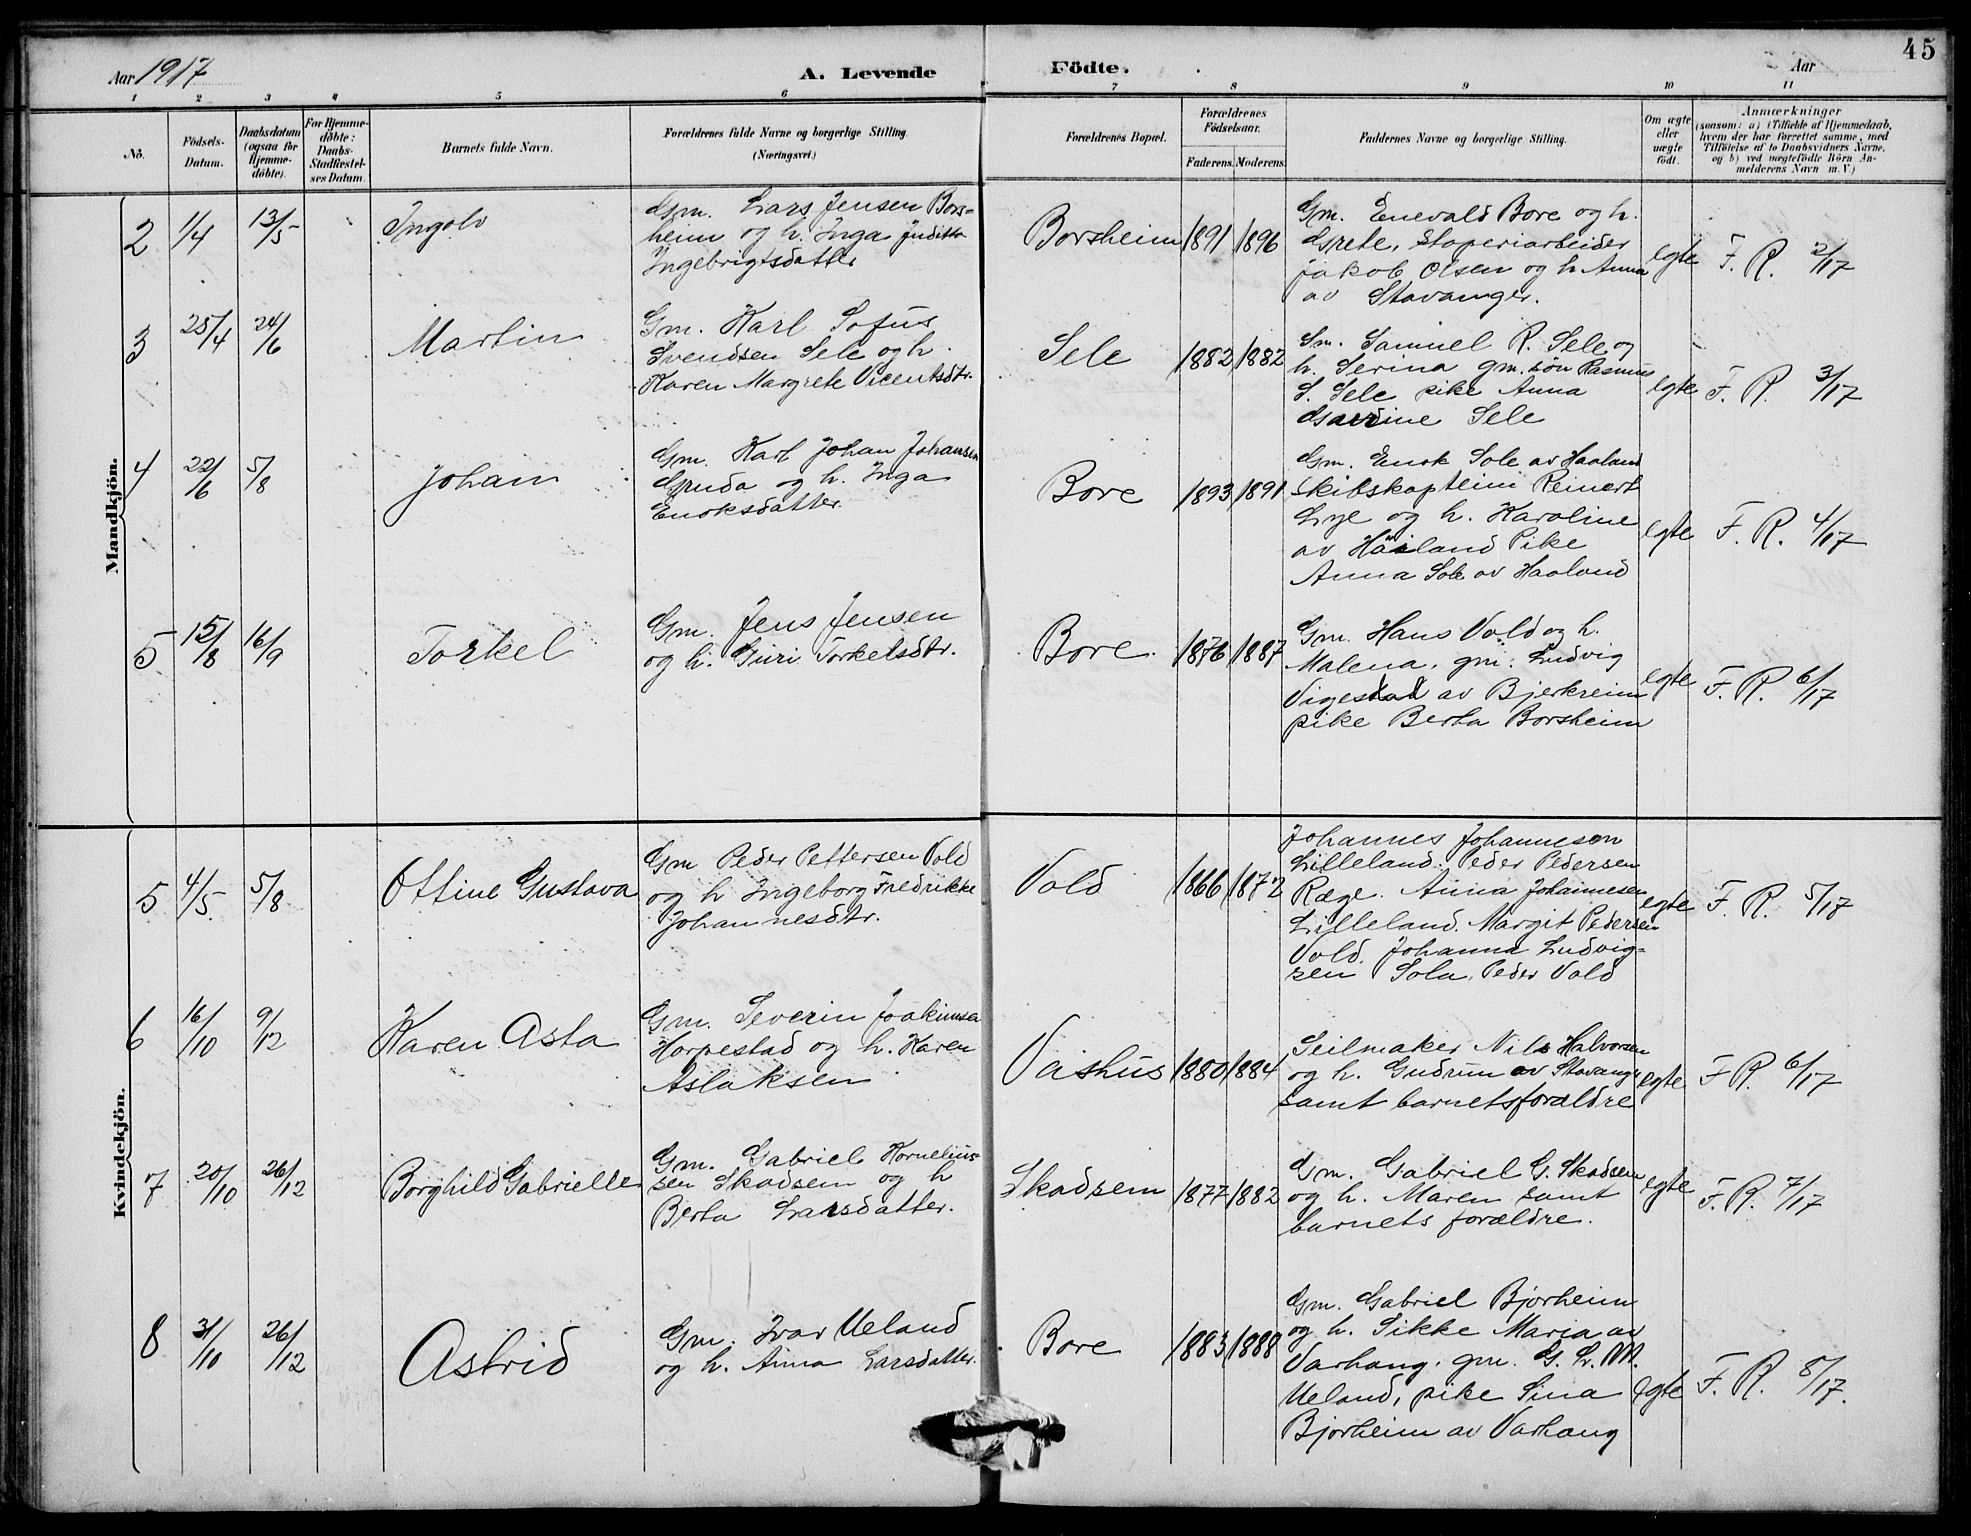 45
Aar 1917
A. Levende
Födte.
Aar
1 2 3 4 5 6 7 8 9 10 11
No.
Födsels-
Datum.
Daabsdatum
(ogsaa for
Hjemme-
döbte).
For Hjemme-
döbte:
Daabs-
Stadfæstel-
ses Datum.
Barnets fulde Navn.
Forældrenes fulde Navne og borgerlige Stilling.
(Næringsvei.)
Forældrenes Bopæl.
Forældrenes
Födselsaar.
Faderens. Moderens.
Faddernes Navne og borgerlige Stilling.
Om ægte
eller
uægte
födt.
Anmærkninger
(saasom: a) i Tilfælde af Hjemmedaab,
hvem der har forrettet samme, med
Tilföielse af to Daabsvidners Navne,
og b) ved uægtefödte Börn An-
melderens Navn m. V.)
Mandkjön.
2 1/4 13/5
Ingolv
Gm. Lars Jensen Bors=
heim og h. Inga Juditta
Ingebrigtsdatter
Borsheim 1891 1896
Gm. Enevald Bore og h.
Grete, Støperiarbeider
Jakob Olsen og h Anna
av Stavanger.
egte F. R. 2/17
3 25/4 24/6
Martin
Gm. Karl Sofus
Svendsen Sele og h.
Karen Margrete Vicentsdtr.
Sele 1882 1882
Gm. Samuel R. Sele og
h. Serina gm. søn Rasmus
S. Sele pike Anna
Sele
egte F. R. 3/17
4 22/6 5/8
Johan
Gm. Karl Johan Johansen
Gruda og h. Inga
Enoksdatter.
Bore 1893 1891
Gm. Enok Sole av Haaland
Skibskaptein Reinert
Lye og h. Karoline
av Haaland Pike
Anna Sole av Haaland
egte F. R. 4/17
5 15/8 16/9
Torkel
Gm. Jens Jensen
og h. Guri Torkelsdtr.
Bore. 1876 1887
Gm. Hans Vold og h.
Malena, gm. Ludvig
Vigestad av Bjerkreim
pike Berta Borsheim
egte F. R. 6/17
Kvindekjön.
5 4/5. 5/8
Ottine Gustava
Gm Peder Pettersen Vold
og h Ingeborg Fredrikke
Johannesdtr.
Vold 1866 1872
Johannes Johannesen
Lilleland. Peder Pedersen
Ræge. Anna Johannesen
Lilleland. Margit Pedersen
Vold. Johanna Ludvig=
sen Sola. Peder Vold
egte F. R. 5/17
6 16/10 9/12
Karen Asta
Gm. Severin Joakimsen
Horpestad og h. Karen
Aslaksen
Vashus 1880 1884
Seilmaker Nils Halvorsen
og h. Gudrun av Stavanger
samt barnets forældre
egte F R. 6/17
7 20/10 26/12
Borghild Gabrielle
Gm. Gabriel Kornelius-
sen Skadsem og h
Berta Larsdatter.
Skadsem 1877 1882
Gm. Gabriel G. Skadsem
og h. Maren samt
barnets forældre.
egte F. R. 7/17
8 31/10 26/12
Astrid
Gm. Ivar Ueland
og h. Anna Larsdatter.
Bore 1883 1888
Gm. Gabriel Bjorheim
og h. Sikke Maria av
Varhaug. gm. G. L. M.
Ueland, pike Sina
Bjorheim av Varhaug
egte F. R. 8/17.